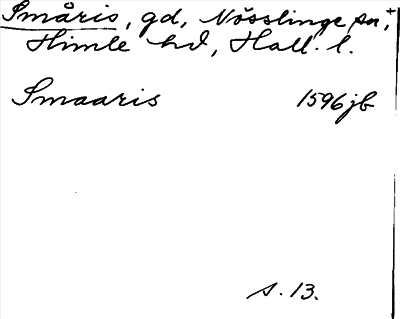 Småris, gd, Nösslinge sn,+
Himle hd, Hall. l.
Smaaris 1596 jb
s. 13.